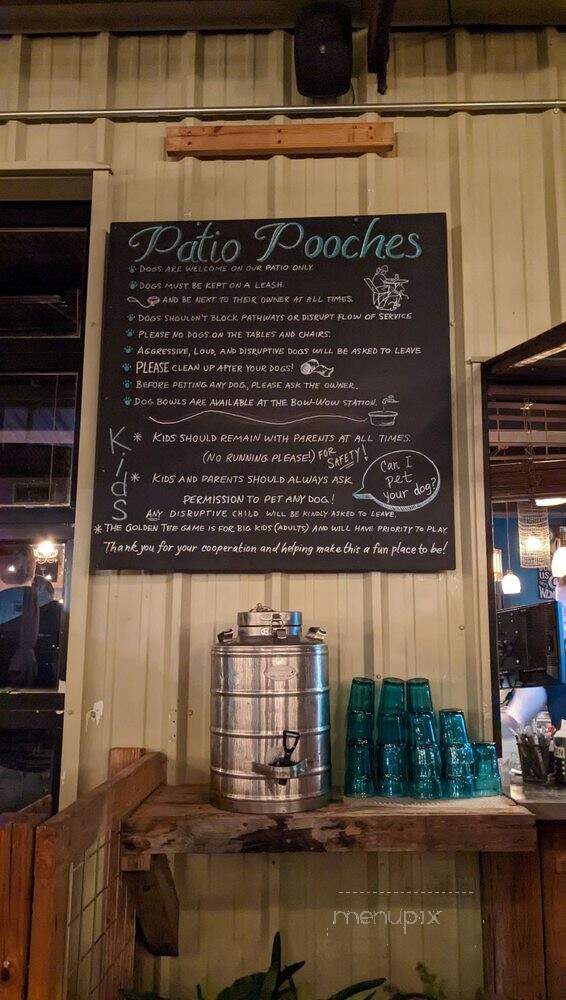 Patio Pooches
DOGS ARE WELCOME ON OUR PATIO ONLY.
DOGS MUST BE KEPT ON A LEASH
AND BE NEXT TO THEIR OWNER AT ALL TIMES.
DOGS SHOULDN'T BLOCK PATHWAYS OR DISRUPT FLOW OF SERVICE
PLEASE NO DOGS ON THE TABLES AND CHAIRS.
AGGRESSIVE, LOUD, AND DISRUPTIVE DOGS WILL BE ASKED TO LEAVE
PLEASE CLEAN UP AFTER YOUR DOGS!
BEFORE PETTING ANY DOG, PLEASE ASK THE OWNER.
DOG BOWLS ARE AVAILABLE AT THE BOW-WOW STATION.
KidS
* KIDS SHOULD REMAIN WITH PARENTS AT ALL TIMES.
(NO RUNNING PLEASE!) FOR SAFETY!
* KIDS AND PARENTS SHOULD ALWAYS ASK
PERMISSION TO PET ANY DOG!
Can I
pet
your dog?
ANY DISRUPTIVE CHILD WILL BE KINDLY ASKED TO LEAVE.
* THE GOLDEN TEE GAME IS FOR BIG KIDS (ADULTS) AND WILL HAVE PRIORITY TO PLAY
Thank you for your cooperation and helping make this a fun place to be!
menupix